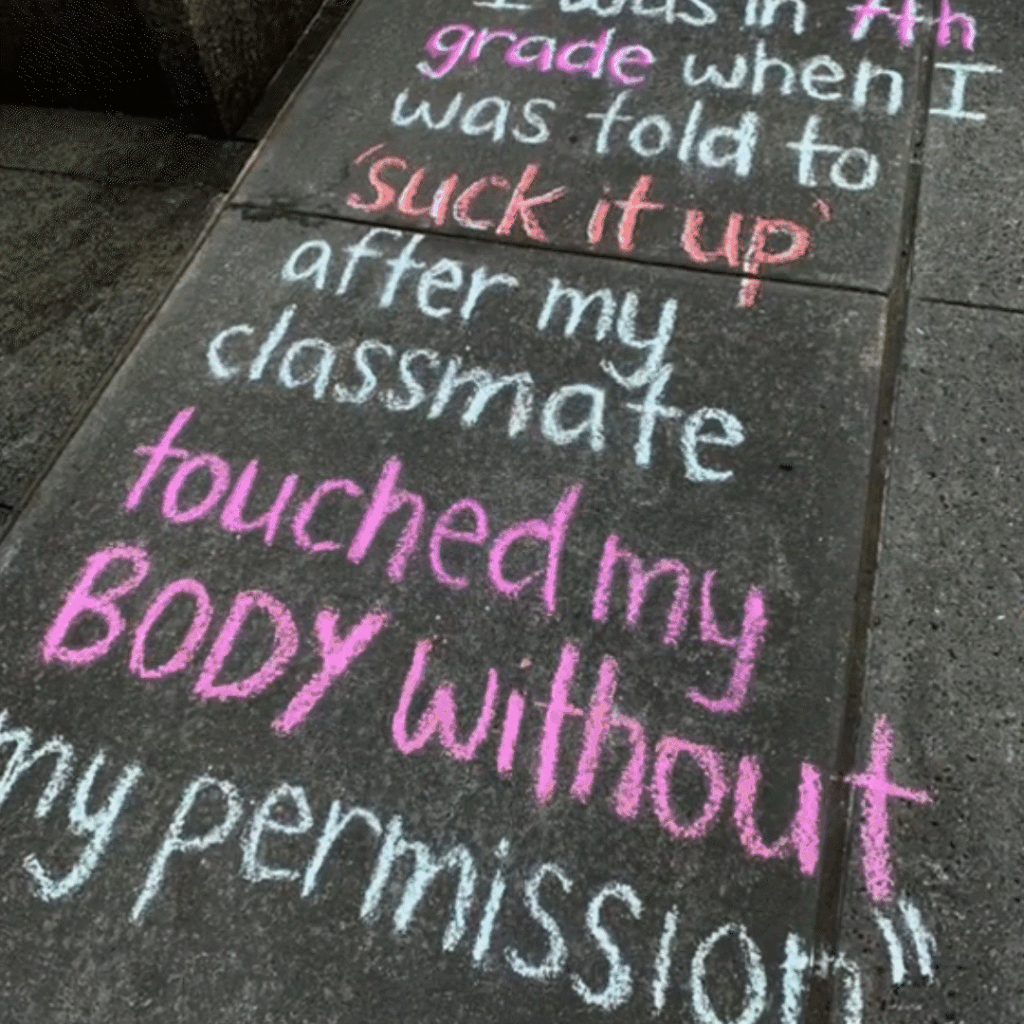 I was in 7th
grade when I
was told to
'suck it up'
after my
classmate
touched my
BODY without
my permission"